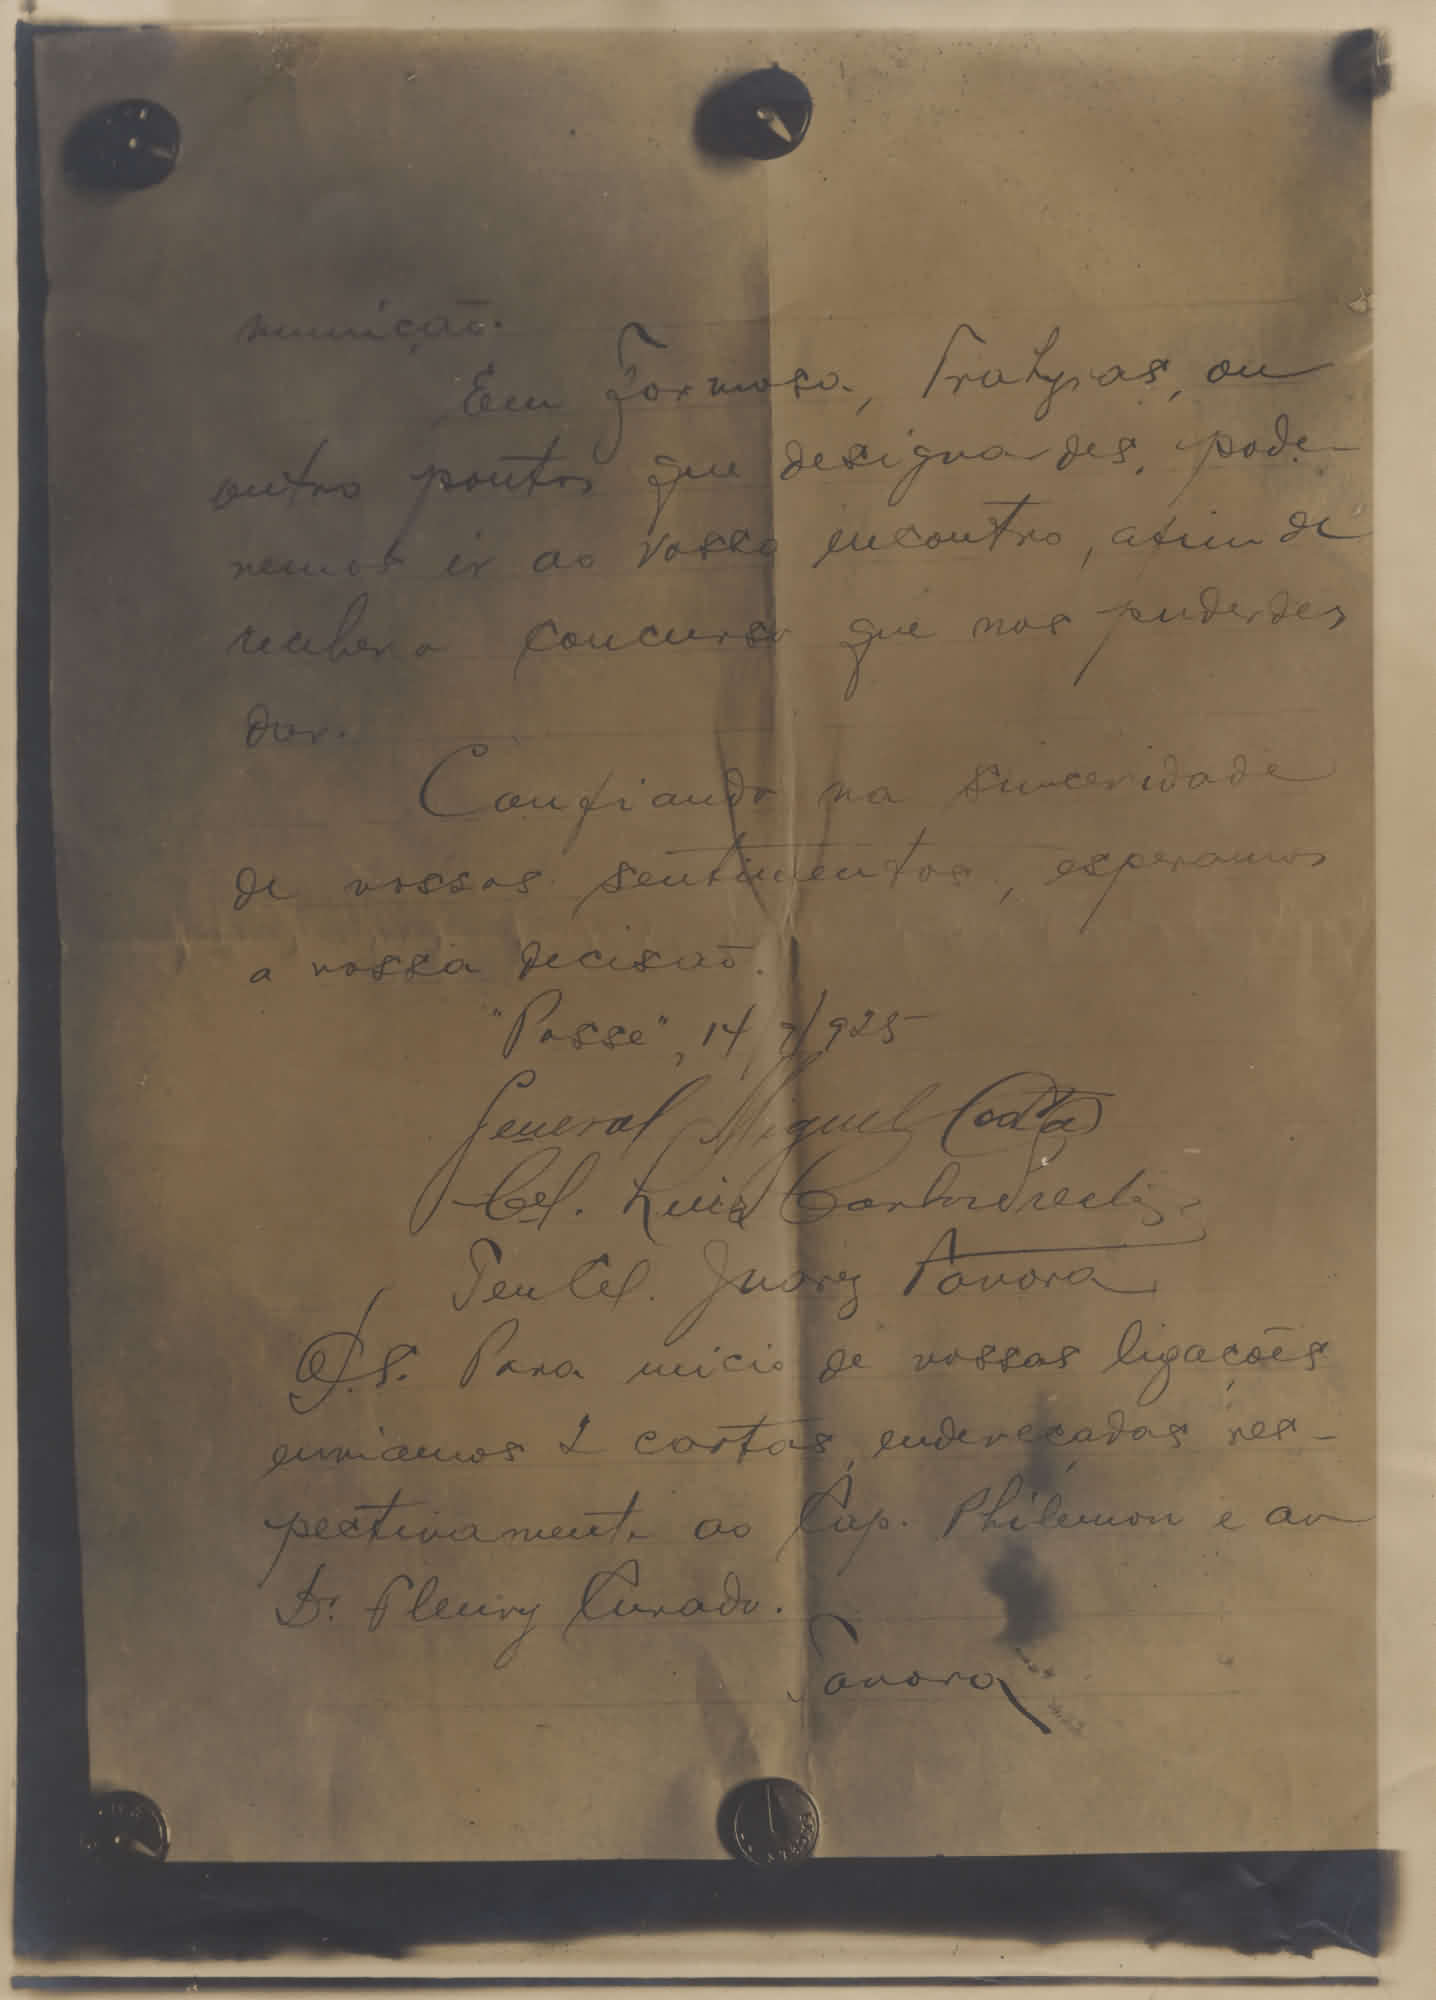 munição.
Em Formosa, Trahyras, ou
outro pontos que designardes, pode-
remos ir ao vosso encontro, afim de
receber o concurso que nos puderdes
dar.
Confiando na sinceridade
de vossos sentimentos, esperamos
a vossa decisão.
"Posse", 14/9/925
General Miguel Costa
Cel. Luiz Carlos Prestes
Ten Cel. Juarez Tavora
P.S. Para inicio de vossas ligações
enviamos 2 cartas, endereçadas res-
pectivamente ao Cap. Philemon e ao
Dr. Fleury Curado.
Tavora